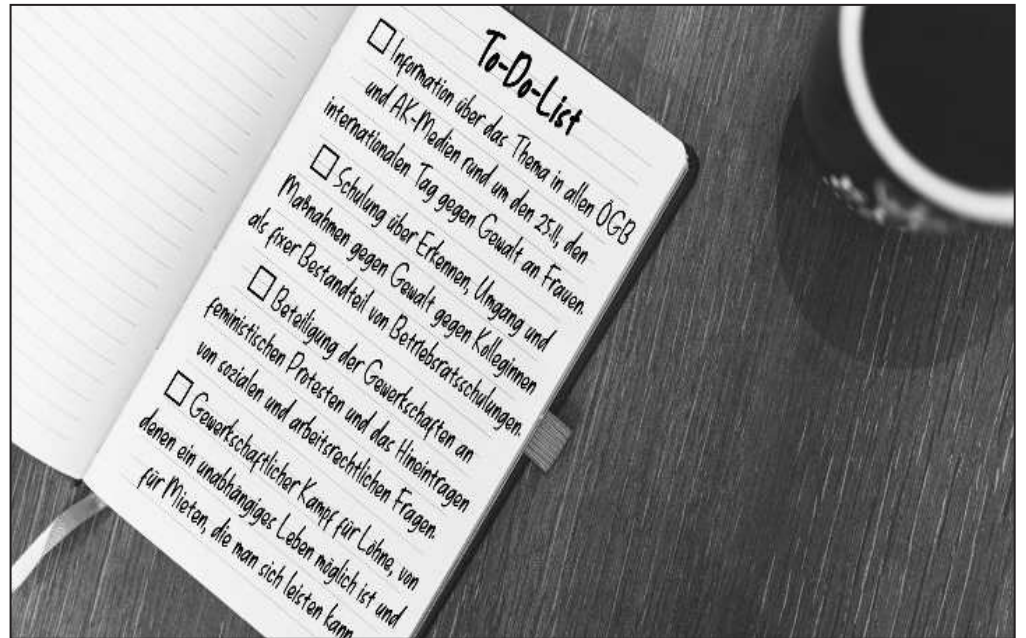 To-Do-List
☐ Information über das Thema in allen ÖGB
und AK-Medien rund um den 25.11, den
internationalen Tag gegen Gewalt an Frauen.
☐ Schulung über Erkennen, Umgang und
Maßnahmen gegen Gewalt gegen Kolleginnen
als fixer Bestandteil von Betriebsratsschulungen.
☐ Beteiligung der Gewerkschaften an
feministischen Protesten und das Hineintragen
von sozialen und arbeitsrechtlichen Fragen.
☐ Gewerkschaftlicher Kampf für Löhne, von
denen ein unabhängiges Leben möglich ist und
für Mieten, die man sich leisten kann